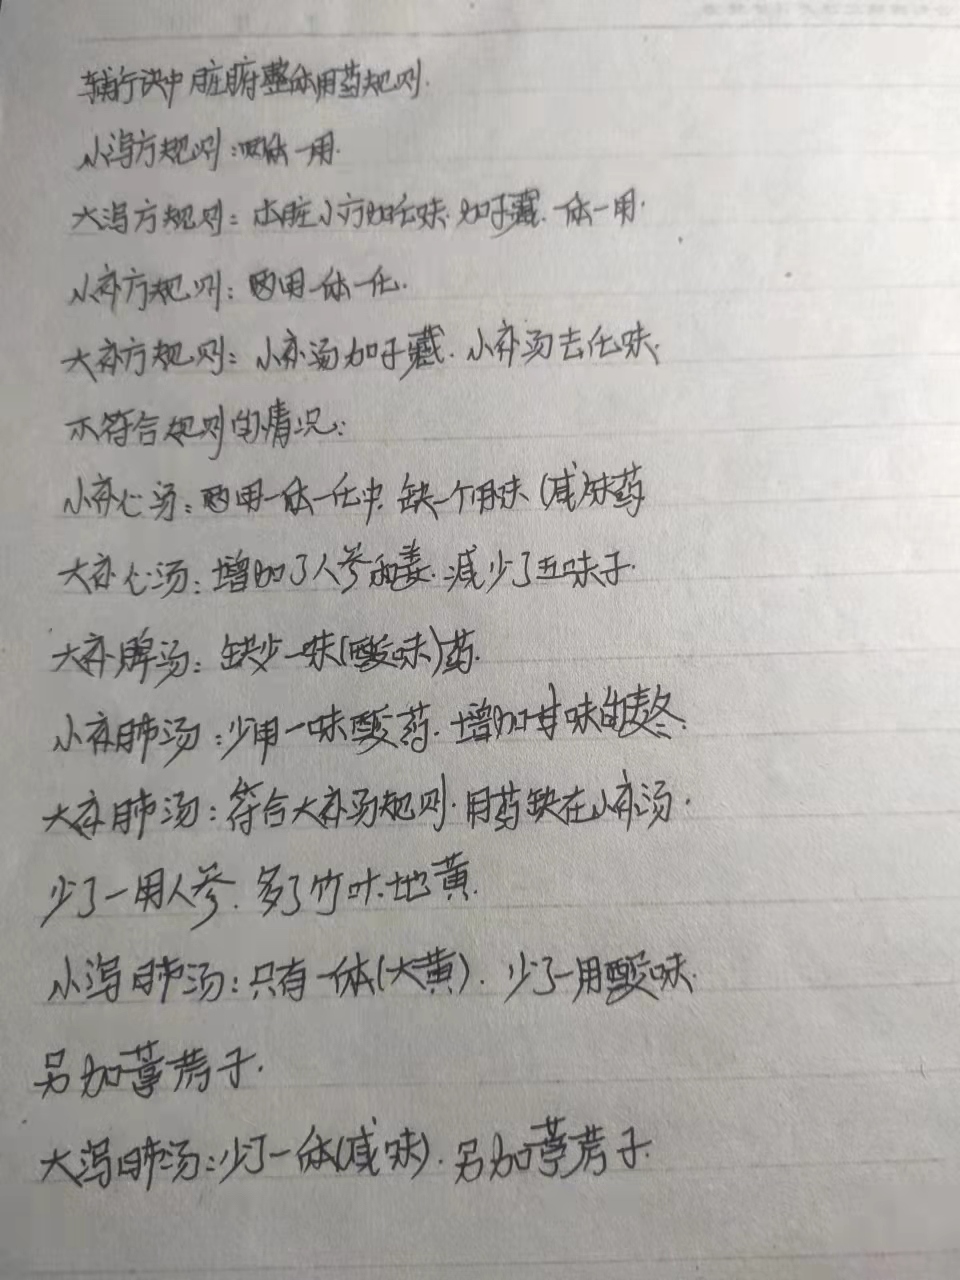 辅行诀中脏腑整体用药规则.
小泻方规则:两体一用.
大泻方规则:本脏小方加化味.加子藏.一体一用.
小补方规则:两用一体一化.
大补方规则:小补汤加子藏.小补汤去化味.
不符合规则的情况:
小补心汤:两用一体一化中.缺一个用味(咸)味药
大补心汤:增加了人参和姜.减少了五味子.
大补脾汤:缺少一味(酸味)药.
小补肺汤:少用一味酸药.增加甘味的麦冬.
大补肺汤:符合大补汤规则.用药缺在小补汤.
少了一用人参.多了竹叶.地黄.
小泻肺汤:只有一体(大黄).少了一用酸味.
另加葶苈子.
大泻肺汤:少了一体(咸味).另加葶苈子.